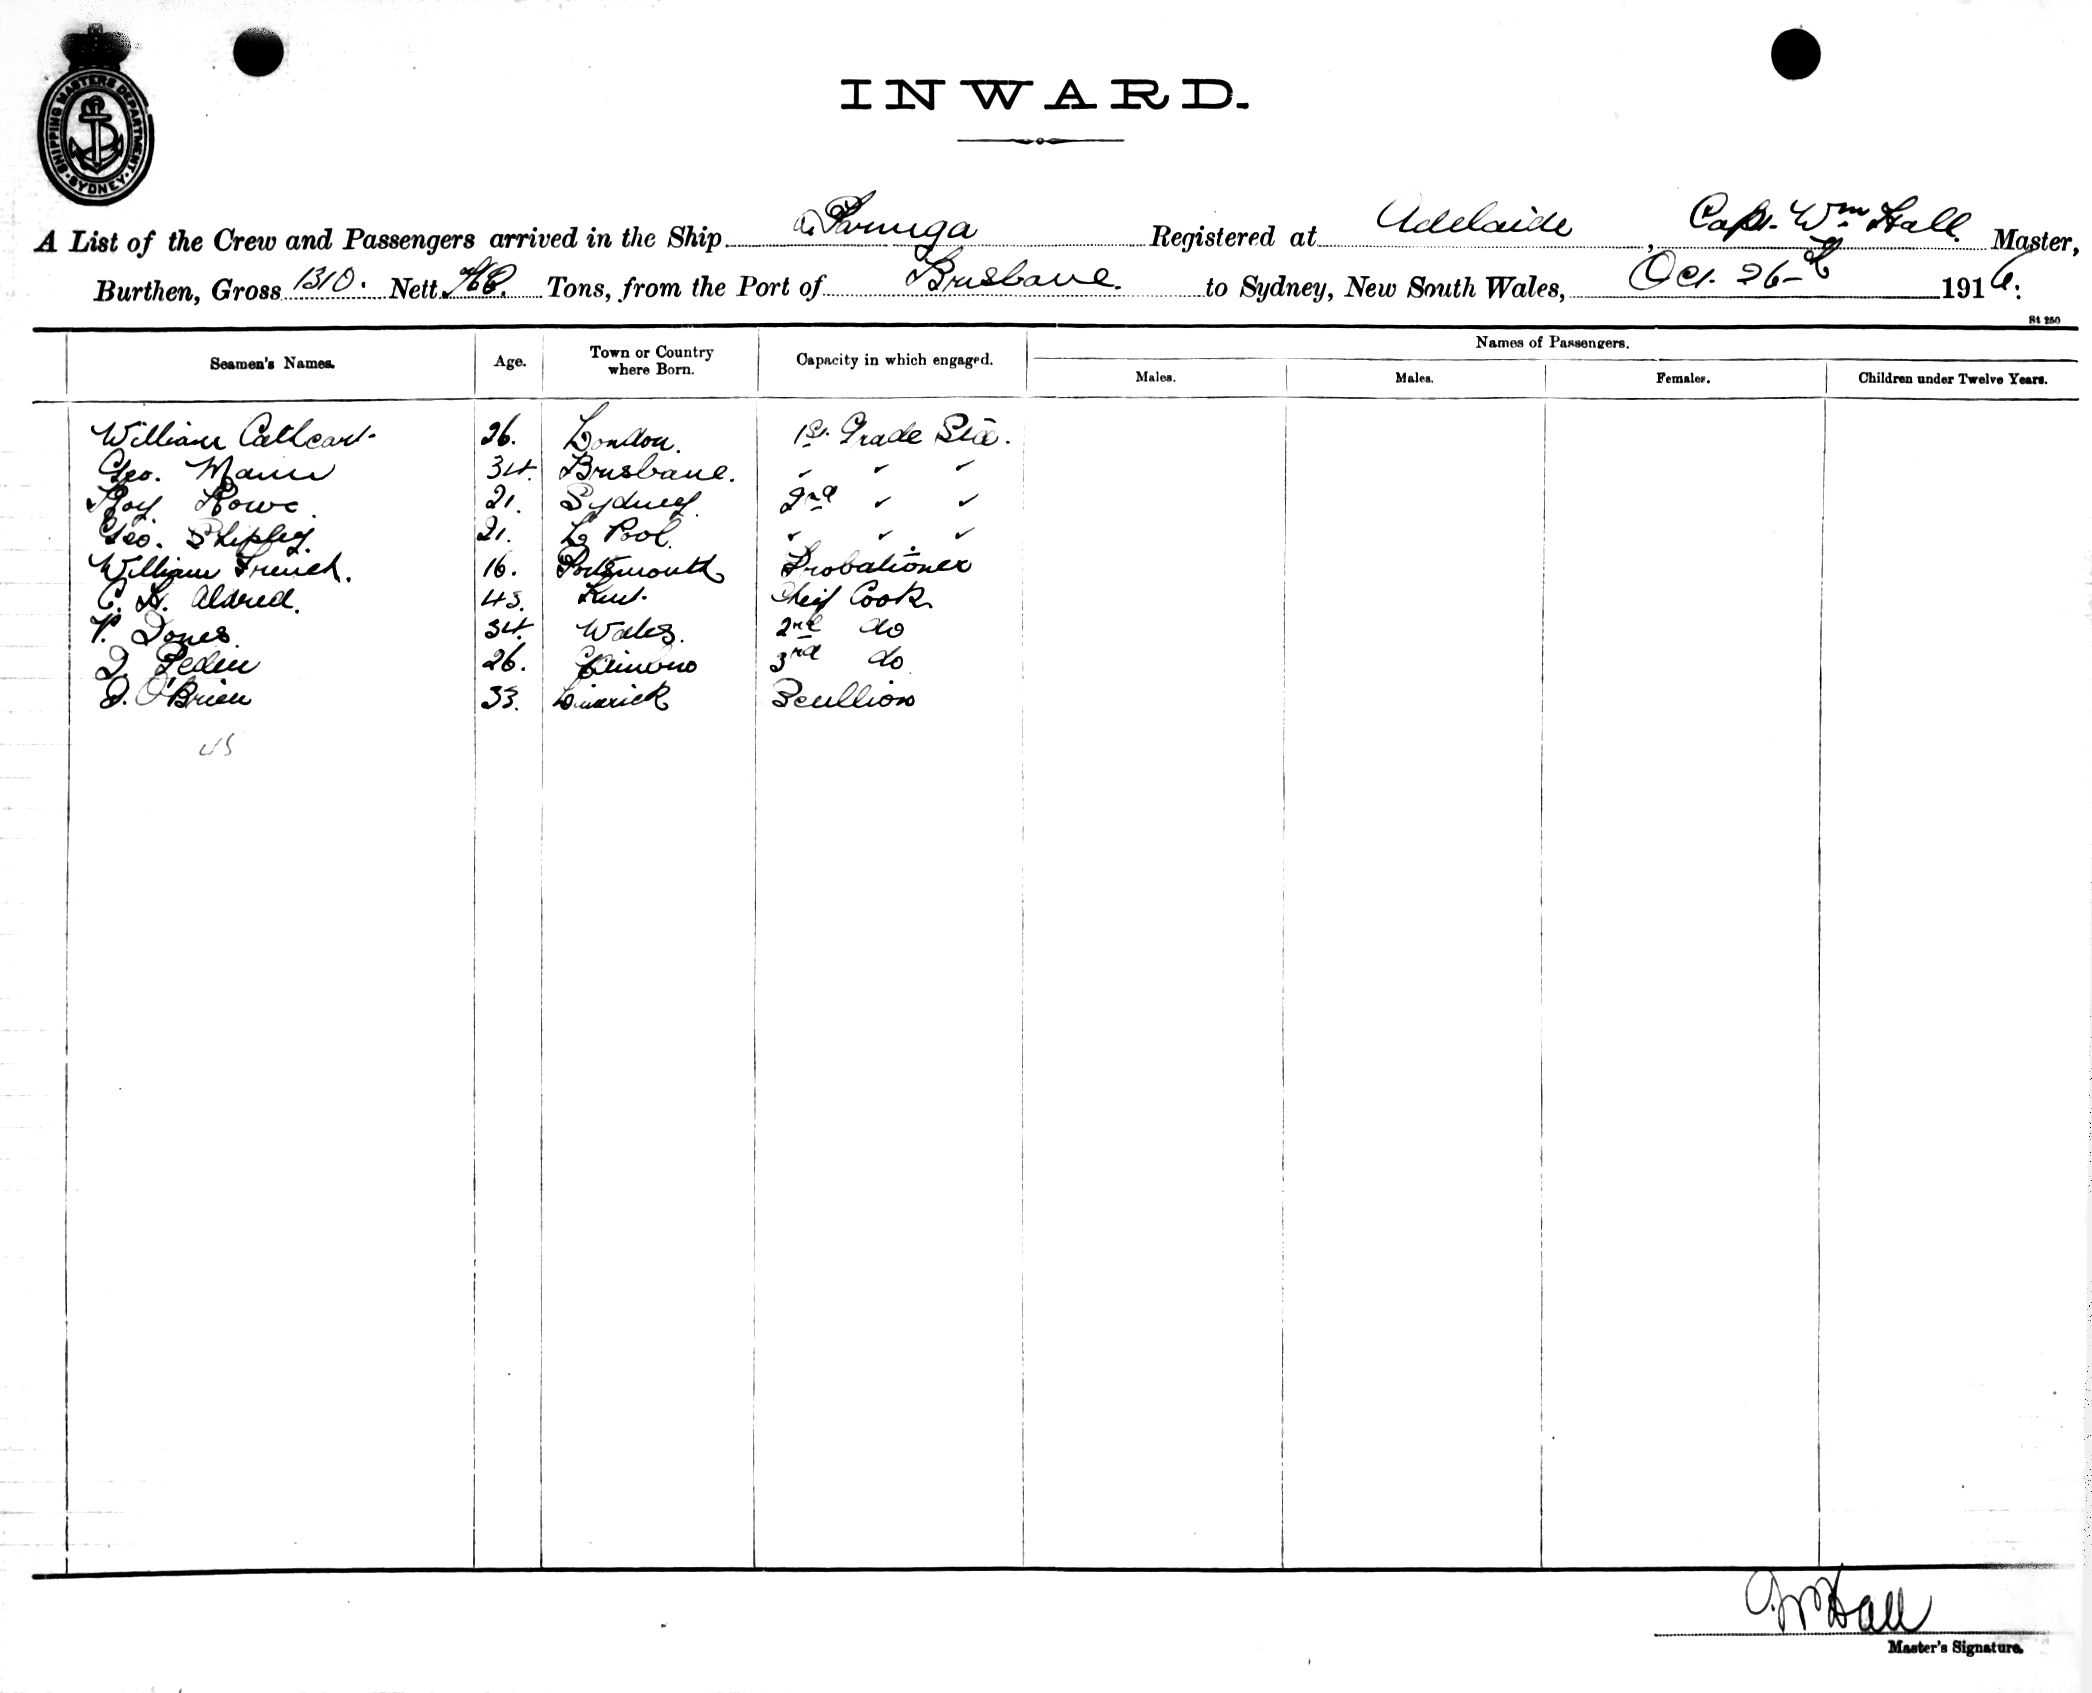 SHIPPING MASTERS DEPARTMENT. SYDNEY
INWARD.
A List of the Crew and Passengers arrived in the Ship Registered at Adelaide, Capt. Wm Hall. Master,
Burthen, Gross 1310. Nett Tons, from the Port of Brisbane. to Sydney, New South Wales, Oct. 26th 1916.
St 250
Seamen's Names. Age. Town or Country where Born. Capacity in which engaged. Names of Passengers.
Males. Males. Females. Children under Twelve Years.
William Cathcart 26. London. 1st. Grade Std.
Geo. Mann 34. Brisbane. " " "
Roy Rowe. 21. Sydney 2nd " "
Geo. Shipley. 21. L Pool. " " "
William French. 16. Portsmouth Probationer
C. H. Aldred. 43. Kent. Cheif Cook
V. Jones 34. Wales. 2nd do
J. Pedin 26. 3rd do
J. O'Brien 33. Limerick Scullion
45
Wm Hall
Master's Signature.